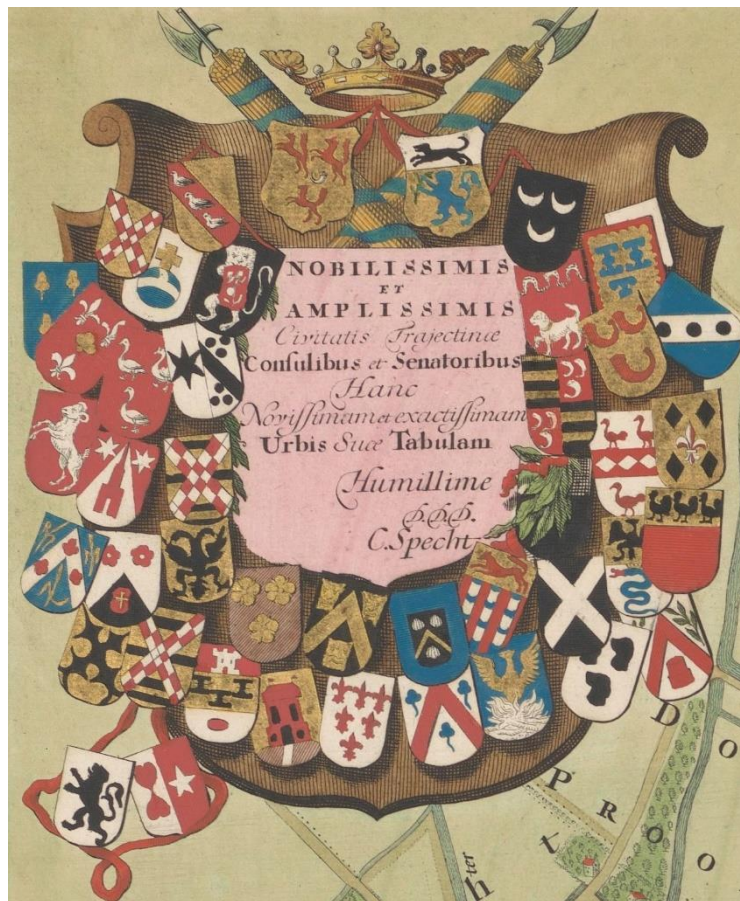 NOBILISSIMIS
ET
AMPLISSIMIS
Civitatis Trajectinæ
Consulibus et Senatoribus
Hanc
Novissimam et exactissimam
Urbis Suæ Tabulam
Humillime
D.D.D.
C. Specht
D O
P R O O
hter
h t